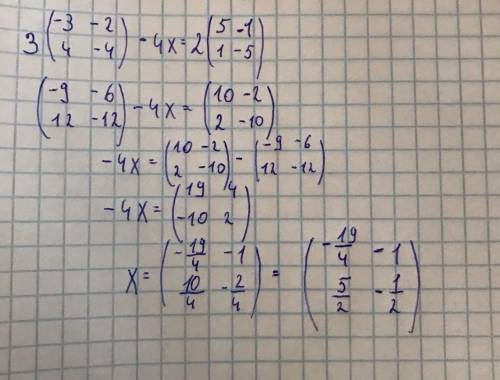 3 (-3 -2
4 -4) - 4x = 2 (5 -1
1 -5)
(-9 -6
12 -12) - 4x = (10 -2
2 -10)
-4x = (10 -2
2 -10) - (-9 -6
12 -12)
-4x = (19 4
-10 2)
x = (-19/4 -1
10/4 -2/4) = (-19/4 -1
5/2 -1/2)